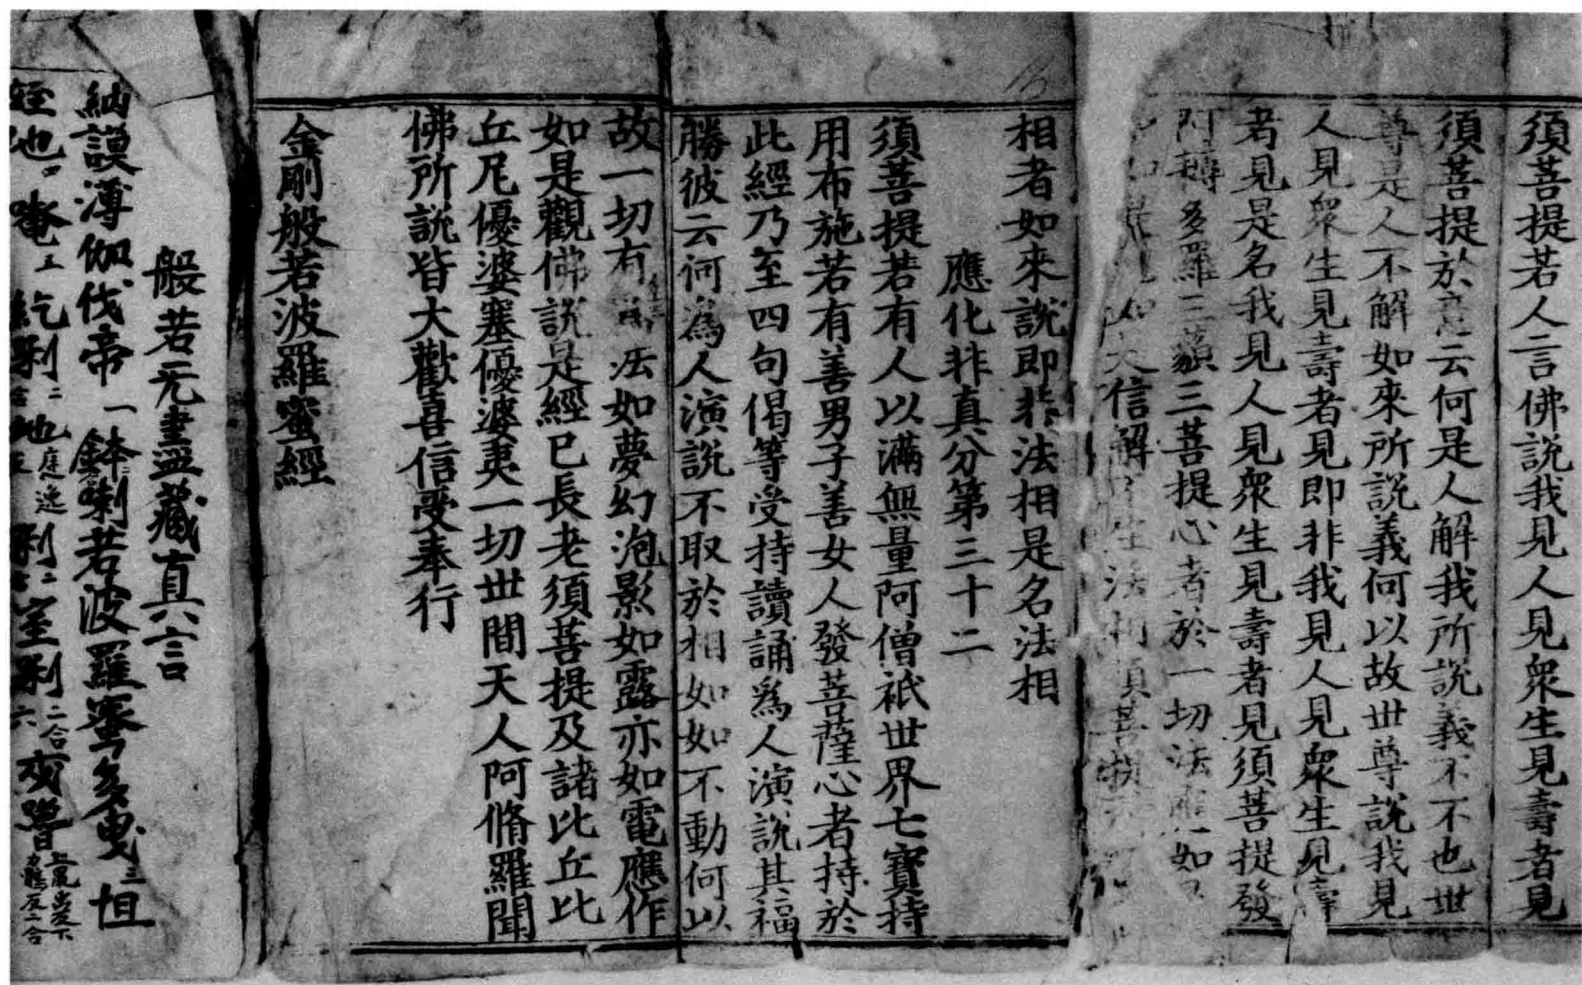 須菩提若人言佛說我見人見衆生見壽者見
須菩提於意云何是人解我所說義不不也世
尊是人不解如來所說義何以故世尊說我見
人見衆生見壽者見即非我見人見衆生見壽
者見是名我見人見衆生見壽者見須菩提發
阿耨多羅三藐三菩提心者於一切法應如是
知如是見如是信解不生法相須菩提
相者如來說即非法相是名法相
應化非真分第三十二
須菩提若有人以滿無量阿僧祇世界七寶持
用布施若有善男子善女人發菩薩心者持於
此經乃至四句偈等受持讀誦為人演說其福
勝彼云何為人演說不取於相如如不動何以
故一切有為法如夢幻泡影如露亦如電應作
如是觀佛說是經已長老須菩提及諸比丘比
丘尼優婆塞優婆夷一切世間天人阿脩羅聞
佛所說皆大歡喜信受奉行
金剛般若波羅蜜經
般若无盡藏真言
納謨薄伽伐帝一鉢喇若波羅蜜多曳三怛
姪他四唵五紇利二合地五利二合室利二合六